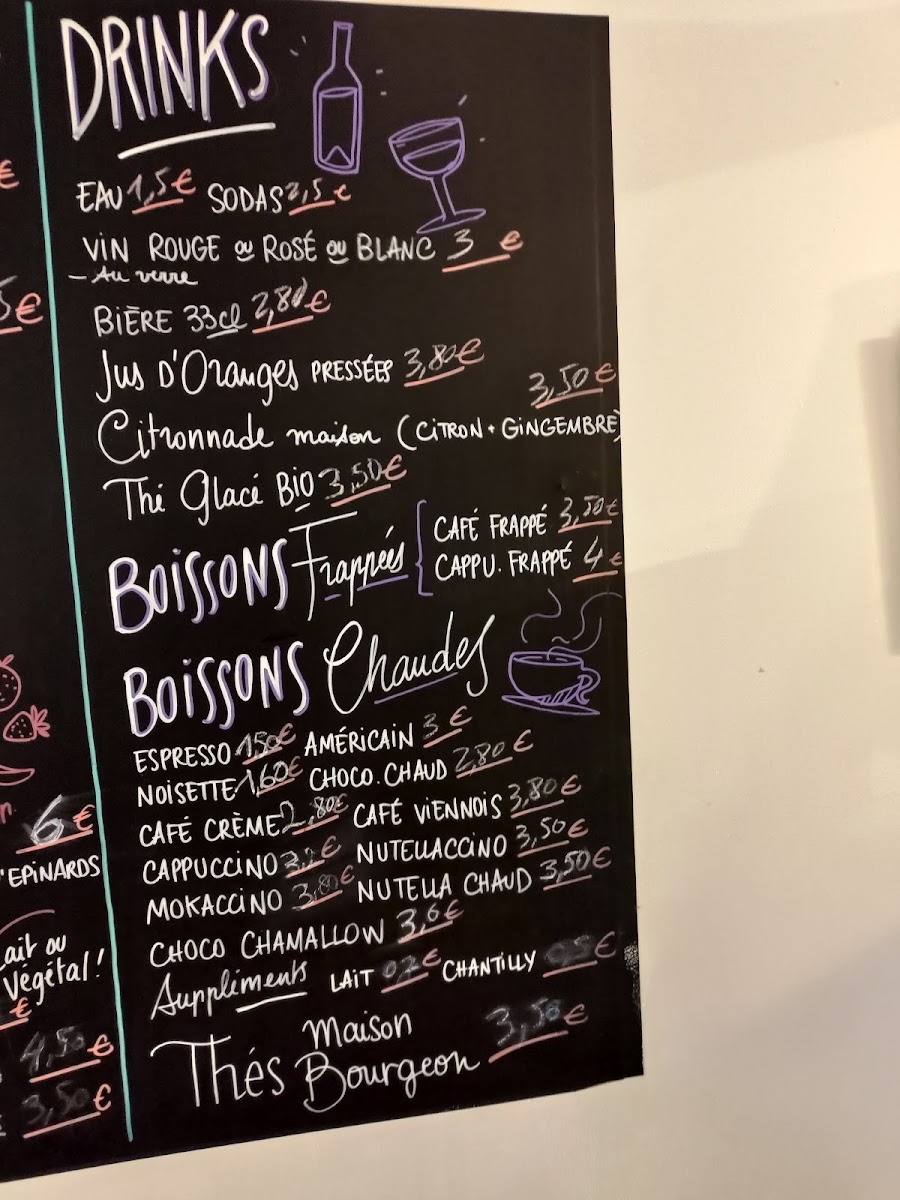 DRINKS
EAU 1,5€ SODAS 2,5€
VIN ROUGE ou ROSÉ ou BLANC 3 €
- Au verre
BIÈRE 33cl 2,80€
Jus D'Oranges PRESSÉES 3,80€
3,50€
Citronnade maison (CITRON + GINGEMBRE)
Thé Glacé BIO 3,50€
BOISSONS Frappées { CAFÉ FRAPPÉ 3,50€
CAPPU. FRAPPÉ 4 €
BOISSONS Chaudes
ESPRESSO 1,50€ AMÉRICAIN 3 €
NOISETTE 1,60€ CHOCO. CHAUD 2,80 €
CAFÉ CRÈME 2,80€ CAFÉ VIENNOIS 3,80€
CAPPUCCINO 3,2€ NUTELLACCINO 3,50€
MOKACCINO 3,80€ NUTELLA CHAUD 3,50€
CHOCO CHAMALLOW 3,6€
Suppléments LAIT 0,2€ CHANTILLY 0,5€
Thés Maison Bourgeon 3,50€
€
5€
6€
EPINARDS
Lait ou
Végétal!
€
4,50€
3,50€